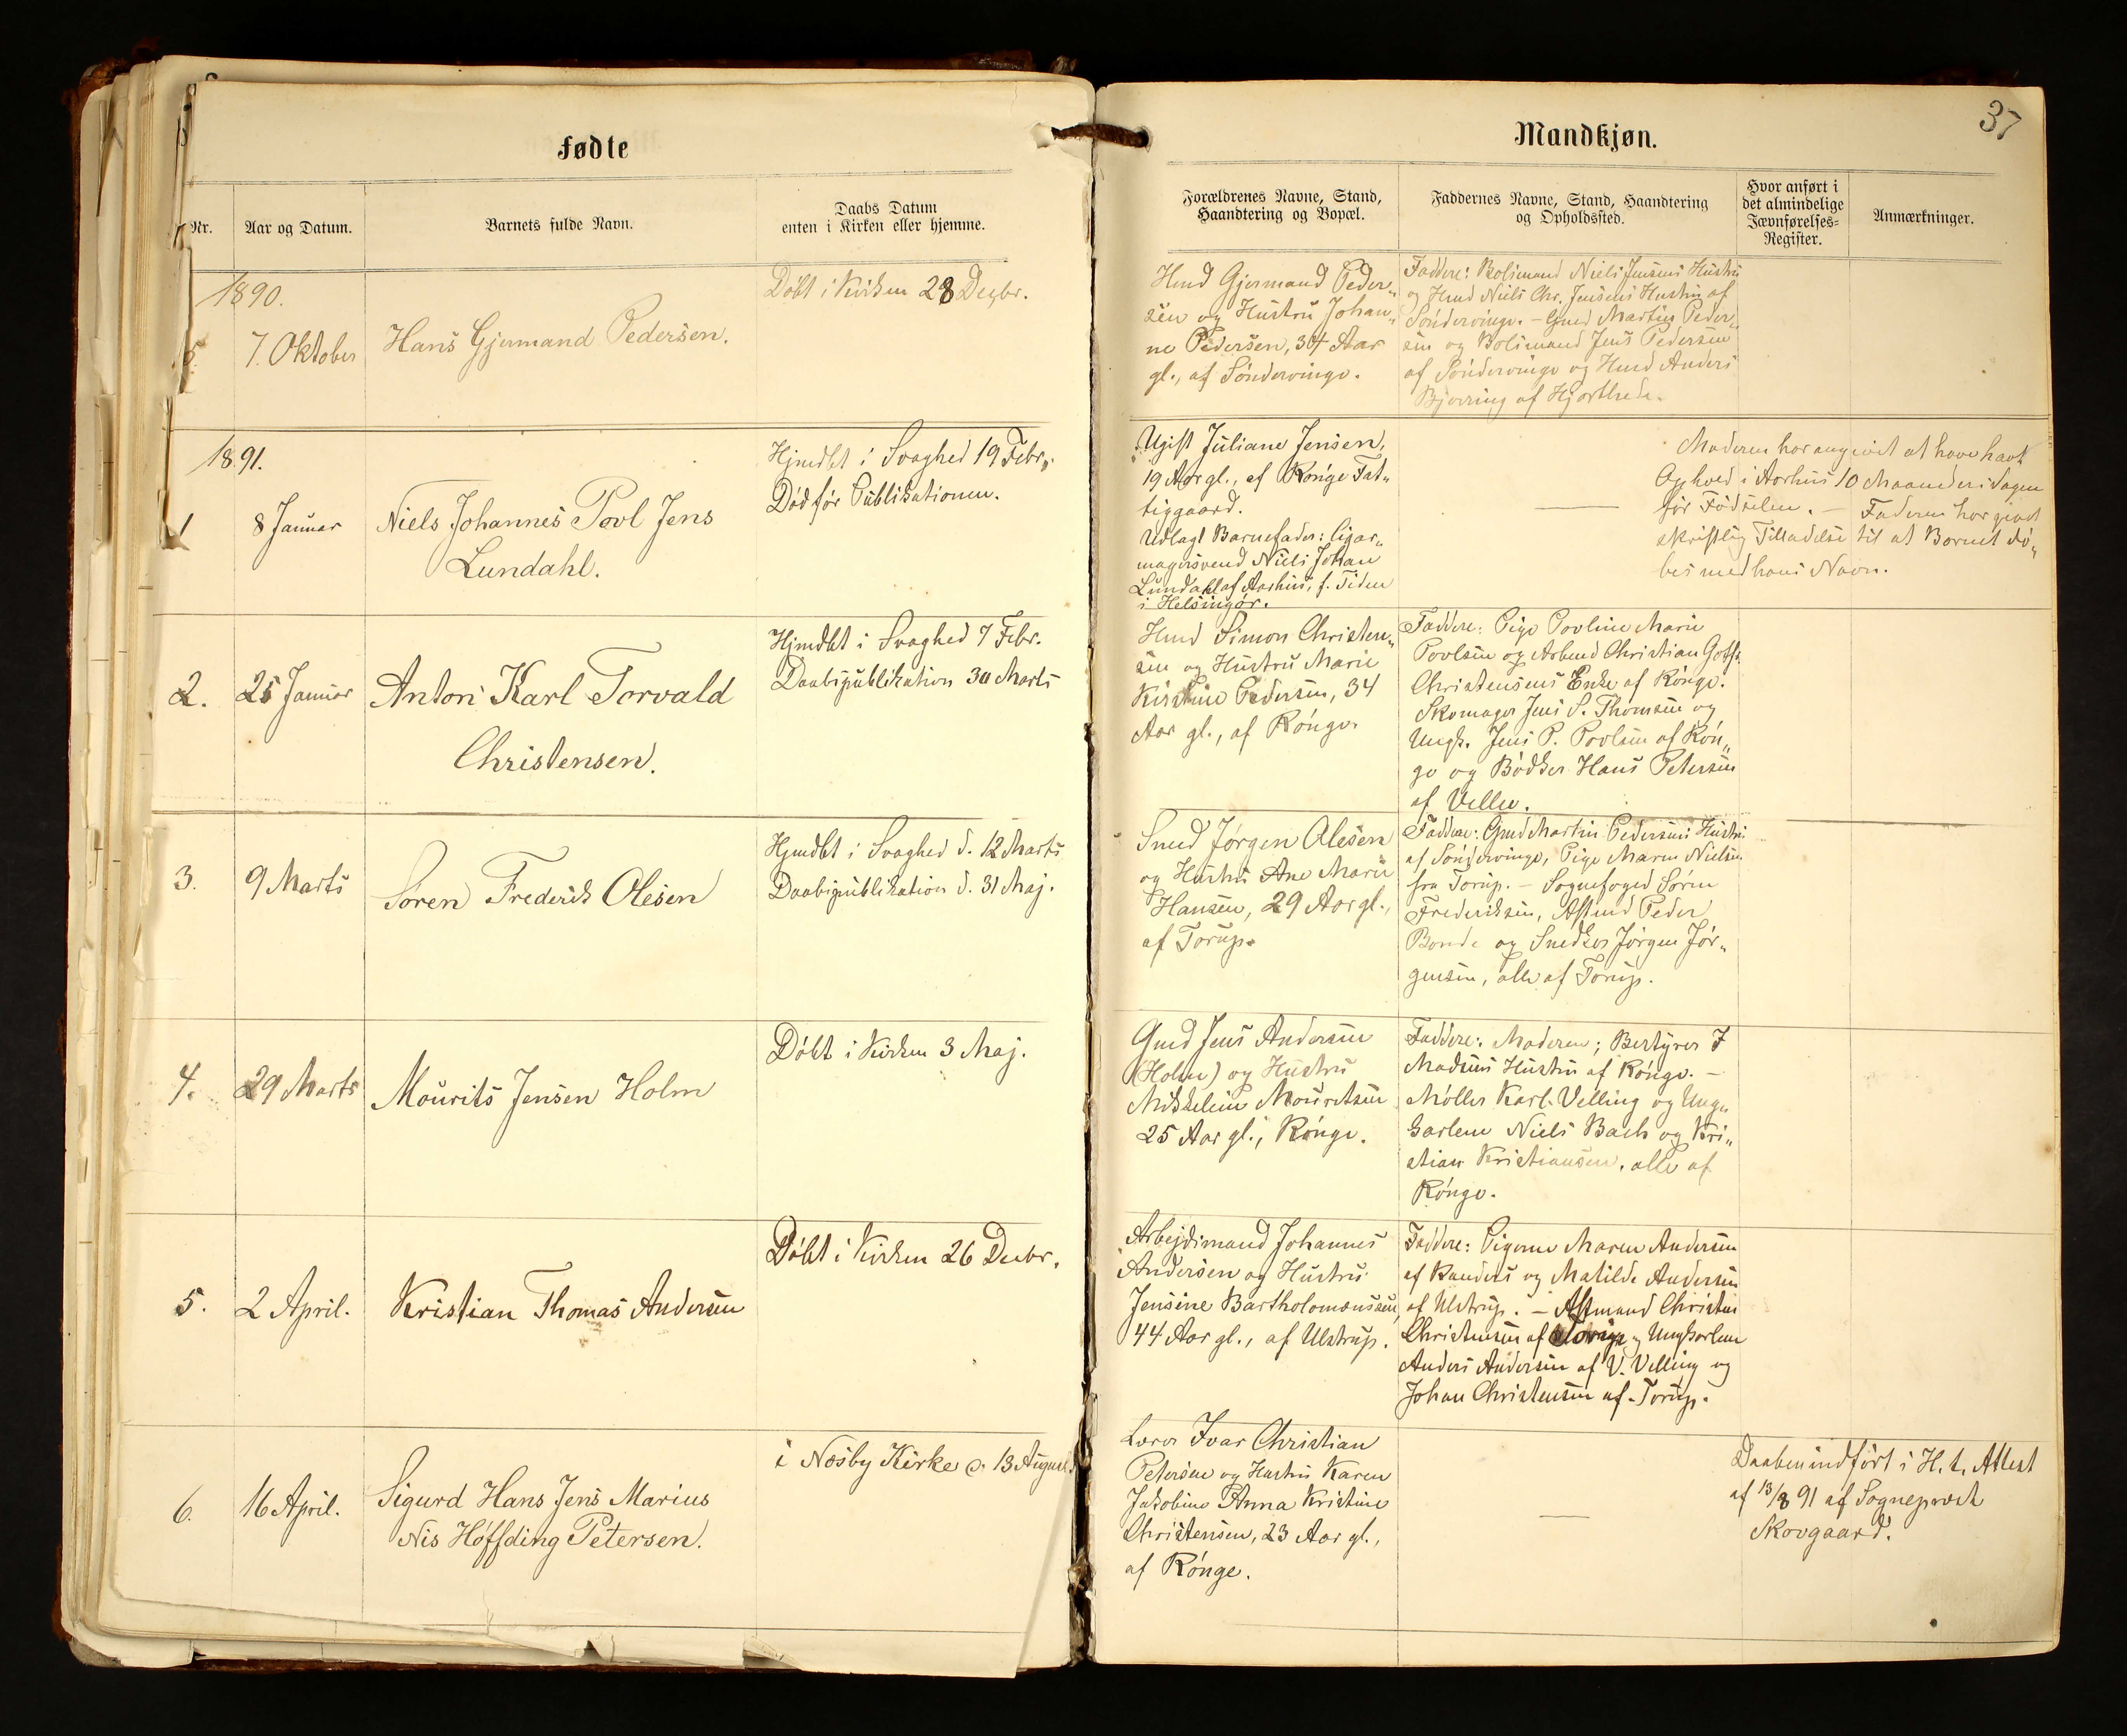 Fødte
Mandkjøn.
37
Nr.
Aar og Datum.
Barnets fulde Navn.
Daabs Datum
enten i Kirken eller hjemme.
Forældrenes Navne, Stand,
Haandtering og Bopæl.
Faddernes Navne, Stand, Haandtering
og Opholdssted.
Hvor anført i
det almindelige
Jævnførelses-
Register.
Anmærkninger.
1890.
7. Oktober
Hans Gjermand Pedersen.
Døbt i Kirken 28 Decbr.
Hmd Gjermand Peder„
sen og Hustru Johan„
ne Pedersen, 34 Aar
gl., af Søndervinge.
Faddere: Bolsmand Niels Jensens Hustru
og Hmd Niels Chr. Jensens Hustru af
Søndervinge. – Gmd Martin Peder„
sen og Bolsmand Jens Pedersen
af Søndervinge og Hmd Anders
Bjerring af Hjorthede.
1891.
1
8 Januar
Niels Johannes Povl Jens
Lundahl.
Hjmdbt i Svaghed 19 Febr.
Død før Publikationen.
Ugift Juliane Jensen,
19 Aar gl., af Rønge Fat„
tiggaard.
Udlagt Barnefader: Cigar„
magersvend Niels Johan
Lundahl af Aarhus, f. Tiden
i Helsingør.
Moderen har angivet at have havt
Ophold i Aarhus 10 Maaneders Dagen
før Fødselen. – Faderen har givet
skriftlig Tilladelse til at Barnet dø„
bes med hans Navn.
2.
25 Januar
Anton Karl Torvald
Christensen.
Hjmdbt i Svaghed 7 Febr.
Daabspublikation 30 Marts
Hmd Simon Christen„
sen og Hustru Marie
Kirstine Pedersen, 34
Aar gl., af Rønge.
Faddere: Pige Povline Marie
Povlsen og Arbmd Christian Gotfr.
Christensens Enke af Rønge.
Skomager Jens S. Thomsen og
Ungk. Jens P. Povlsen af Røn„
ge og Bødker Hans Petersen
af Vellev.
3.
9 Marts
Søren Frederik Olesen
Hjmdbt i Svaghed d. 12 Marts
Daabspublikation d. 31 Maj.
Smd Jørgen Olesen
og Hustru Ane Marie
Hansen, 29 Aar gl.,
af Torup.
Faddere: Gmd Martin Pedersens Hustru
af Søndervinge, Pige Maren Nielsen
fra Torup. – Sognefoged Søren
Frederiksen, Aftmd Peder
Bonde og Snedker Jørgen Jør„
gensen, alle af Torup.
4.
29 Marts
Mourits Jensen Holm
Døbt i Kirken 3 Maj.
Gmd Jens Andersen
(Holm) og Hustru
Mikkeline Mouritsen
25 Aar gl., Rønge.
Faddere: Moderen; Bestyrer J
Madsens Hustru af Rønge. –
Møller Karl Velling og Ung„
karlene Niels Bach og Kri„
stian Kristiansen, alle af
Rønge.
5.
2 April.
Kristian Thomas Andersen
Døbt i Kirken 26 Decbr.
Arbejdsmand Johannes
Andersen og Hustru
Jensine Bartholomæussen,
44 Aar gl., af Ulstrup.
Faddere: Pigerne Maren Andersen
af Randers og Matilde Andersen
af Ulstrup. – Aftmand Christen
Christensen af Torup og Ungkarlene
Anders Andersen af V. Velling og
Johan Christensen af Torup.
6.
16 April.
Sigurd Hans Jens Marius
Nis Høffding Petersen.
i Næsby Kirke d. 13 August.
Lærer Ivar Christian
Petersen og Hustru Karen
Jakobine Anna Kristine
Christensen, 23 Aar gl.,
af Rønge.
Daaben indført i H. t. Attest
af 13/8 91 af Sognepræst
Skovgaard.